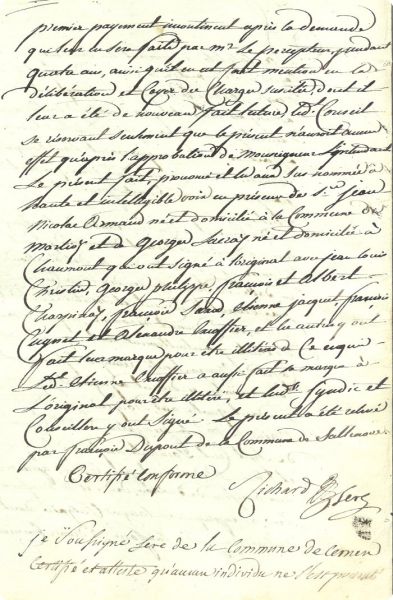 premier payement incontinent après la demande
qui leur en sera faite par mr Le percepteur, pendant
quatre ans, ainsi qu'il en est fait mention en la
délibération et Cayer des Charges susdite dont il
leur a été de nouveau fait lecture led.t Conseil
se réservant seulement que le présent n'auroit aucun
effet qu'après l'approbation de Monseigneur L'jntendant
Le présent fait, prononcé et lu aux sus nommés à
haute et intelligible voix en présence de S.r Jean
Nicolas Armand né et domicilié à la Commune de
et de George né et domicilié à
Chaumont qui ont signé à l'original avec Jean Louis
Christin, George philippe, françois et Albert
françois Etienne jacquet françois
et Alexandre et les autres y ont
fait leur marque pour être illitérés Ce que
led.t Etienne a aussi fait sa marque à
L'original pour être illitéré, et lesd.ts Syndic et
Conseillers y ont Signé. Le présent a été relevé
par françois Dupont de la Commune de Sallenove
Certifié Conforme
Richard
je Soussigné de la Commune de
Certifie et atteste qu'aucun individu ne s'est présenté